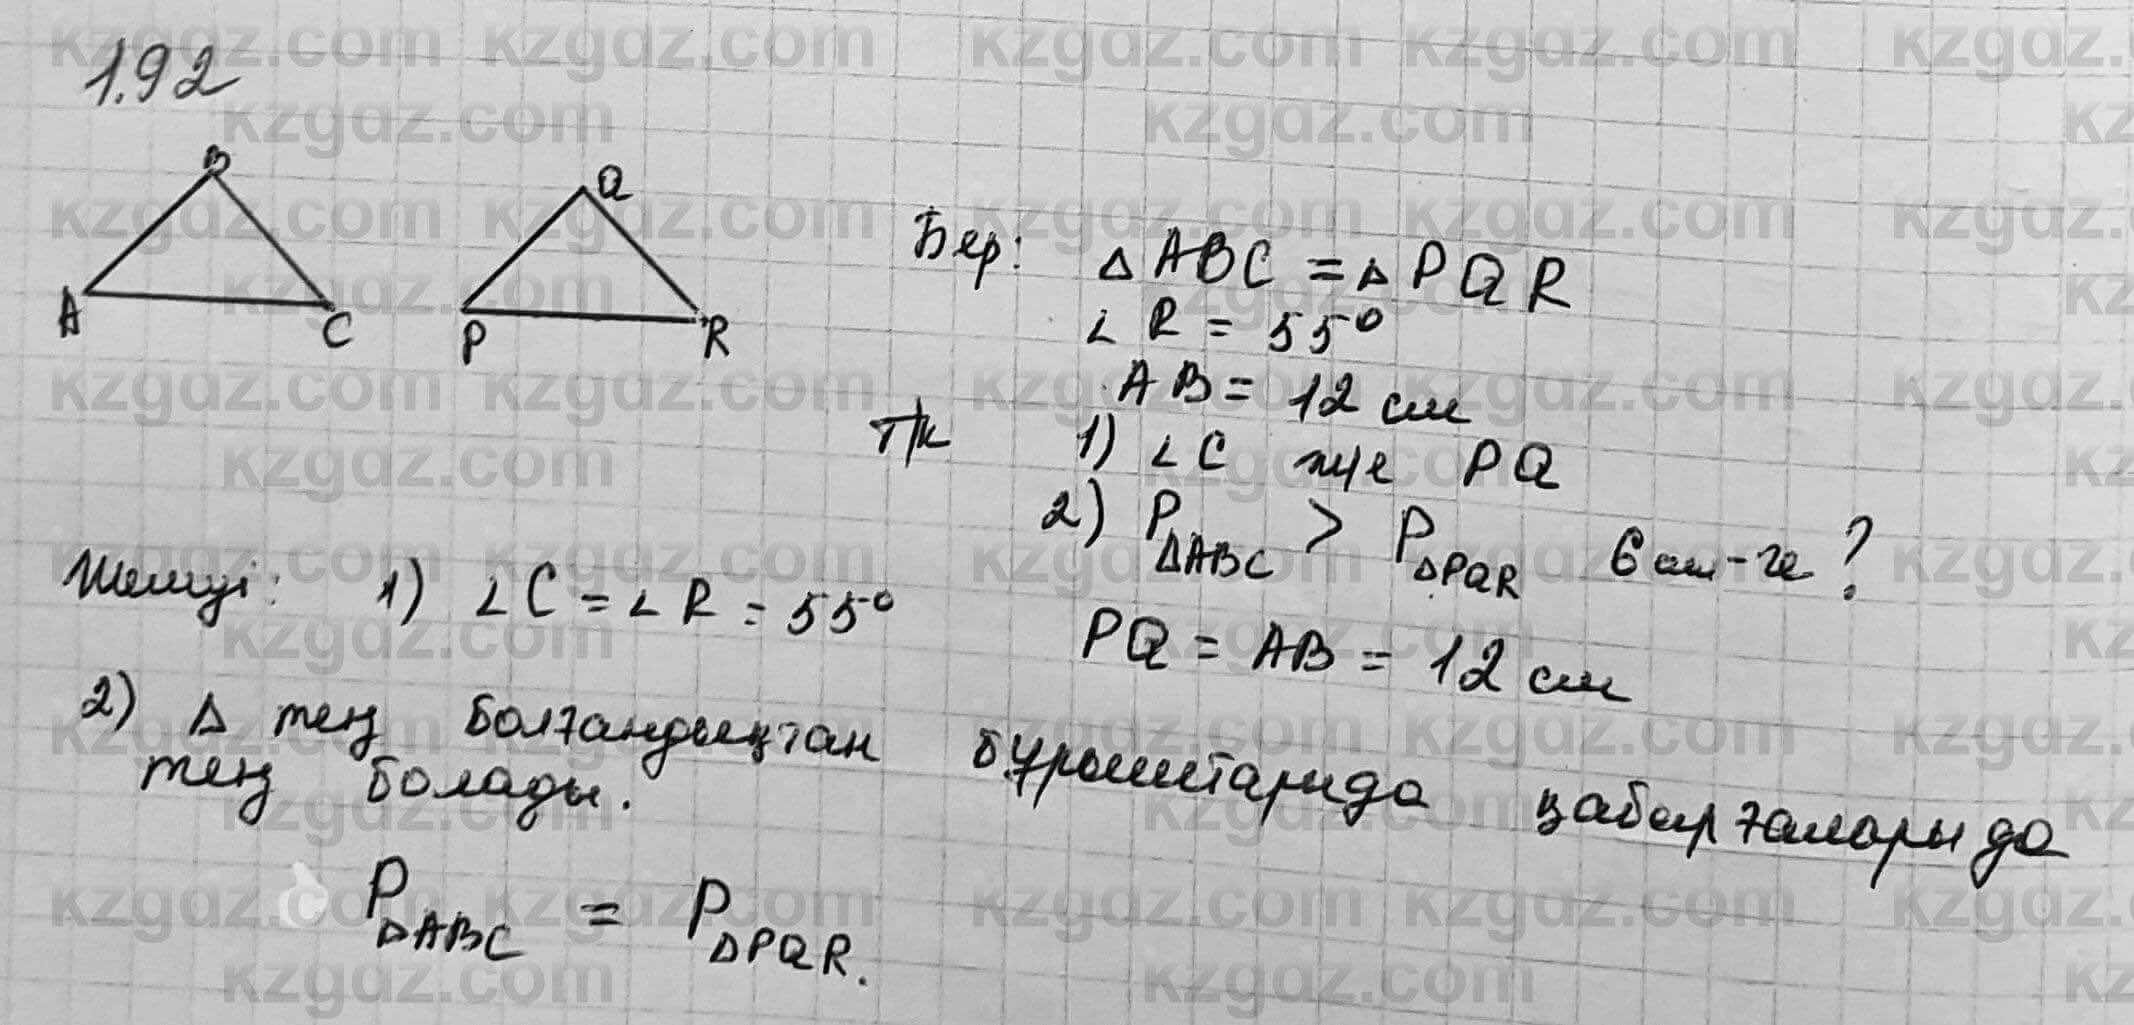 1.92
B
A
C
Q
P
R
Бер: Δ ABC = Δ PQR
∠ R = 55°
AB = 12 см
Т/к 1) ∠ C ж/е PQ
2) P ΔABC > P ΔPQR 6 см-ге ?
Шешуі: 1) ∠ C = ∠ R = 55°
PQ = AB = 12 см
2) Δ тең болғандықтан бұрыштарида қабырғалары да
тең болады.
P ΔABC = P ΔPQR.
kzgdz.com